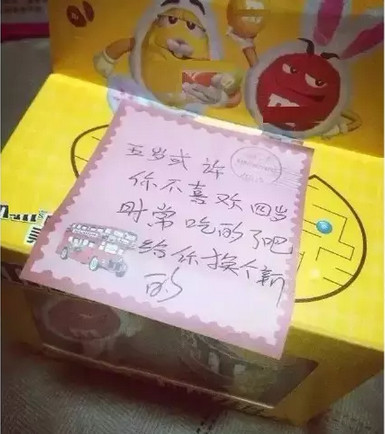 五岁或许
你不喜欢四岁
时常吃的了吧
给你换个新
的